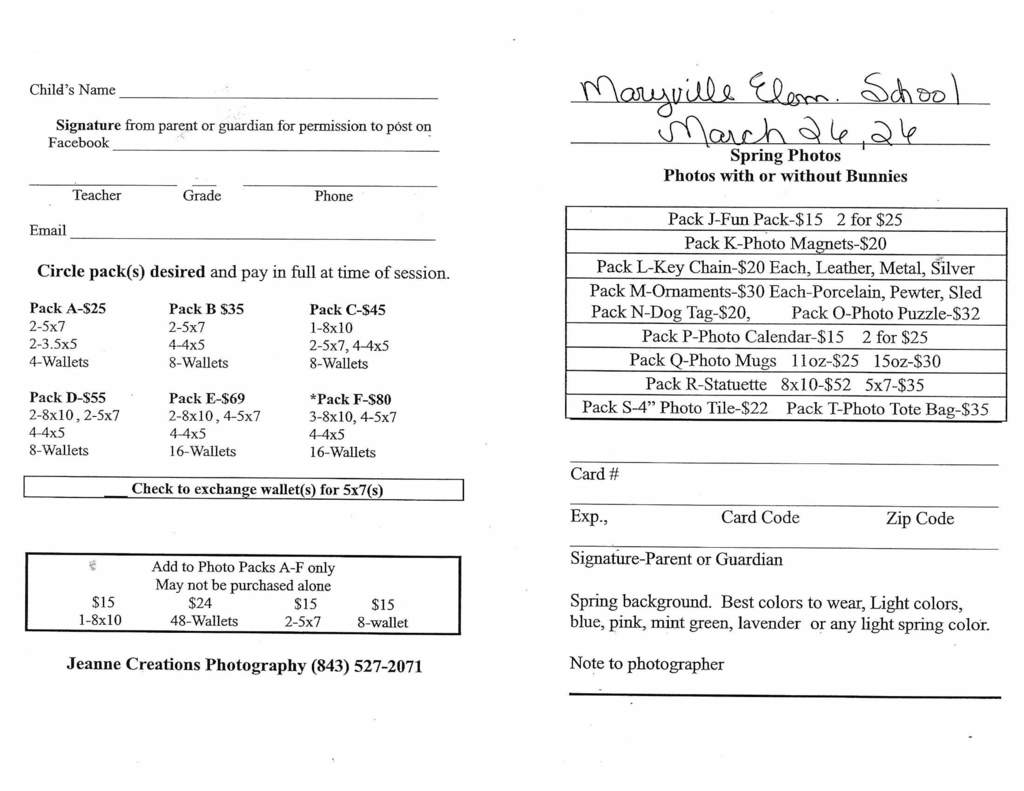 Child's Name
Signature from parent or guardian for permission to post on
Facebook
Teacher Grade Phone
Email
Circle pack(s) desired and pay in full at time of session.
Pack A-$25 Pack B $35 Pack C-$45
2-5x7 2-5x7 1-8x10
2-3.5x5 4-4x5 2-5x7, 4-4x5
4-Wallets 8-Wallets 8-Wallets
Pack D-$55 Pack E-$69 *Pack F-$80
2-8x10, 2-5x7 2-8x10, 4-5x7 3-8x10, 4-5x7
4-4x5 4-4x5 4-4x5
8-Wallets 16-Wallets 16-Wallets
Check to exchange wallet(s) for 5x7(s)
Add to Photo Packs A-F only
May not be purchased alone
$15 $24 $15 $15
1-8x10 48-Wallets 2-5x7 8-wallet
Jeanne Creations Photography (843) 527-2071
Maryville Elem. School
March 26, 26
Spring Photos
Photos with or without Bunnies
Pack J-Fun Pack-$15 2 for $25
Pack K-Photo Magnets-$20
Pack L-Key Chain-$20 Each, Leather, Metal, Silver
Pack M-Ornaments-$30 Each-Porcelain, Pewter, Sled
Pack N-Dog Tag-$20, Pack O-Photo Puzzle-$32
Pack P-Photo Calendar-$15 2 for $25
Pack Q-Photo Mugs 11oz-$25 15oz-$30
Pack R-Statuette 8x10-$52 5x7-$35
Pack S-4" Photo Tile-$22 Pack T-Photo Tote Bag-$35
Card #
Exp., Card Code Zip Code
Signature-Parent or Guardian
Spring background. Best colors to wear, Light colors,
blue, pink, mint green, lavender or any light spring color.
Note to photographer